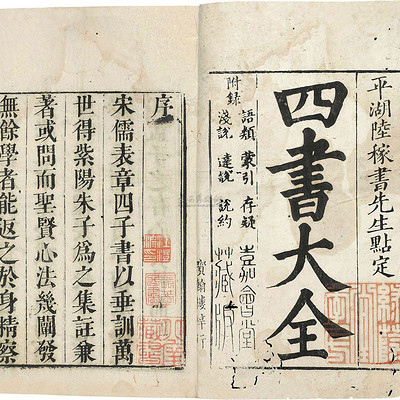 平湖陸稼書先生點定
四書大全
附錄
語類 蒙引 存疑
淺說 達說 說約
嘉會堂藏板
寶翰樓梓行
序
宋儒表章四子書以垂訓萬
世得紫陽朱子爲之集註兼
著或問而聖賢心法幾闡發
無餘學者能返之於身精察